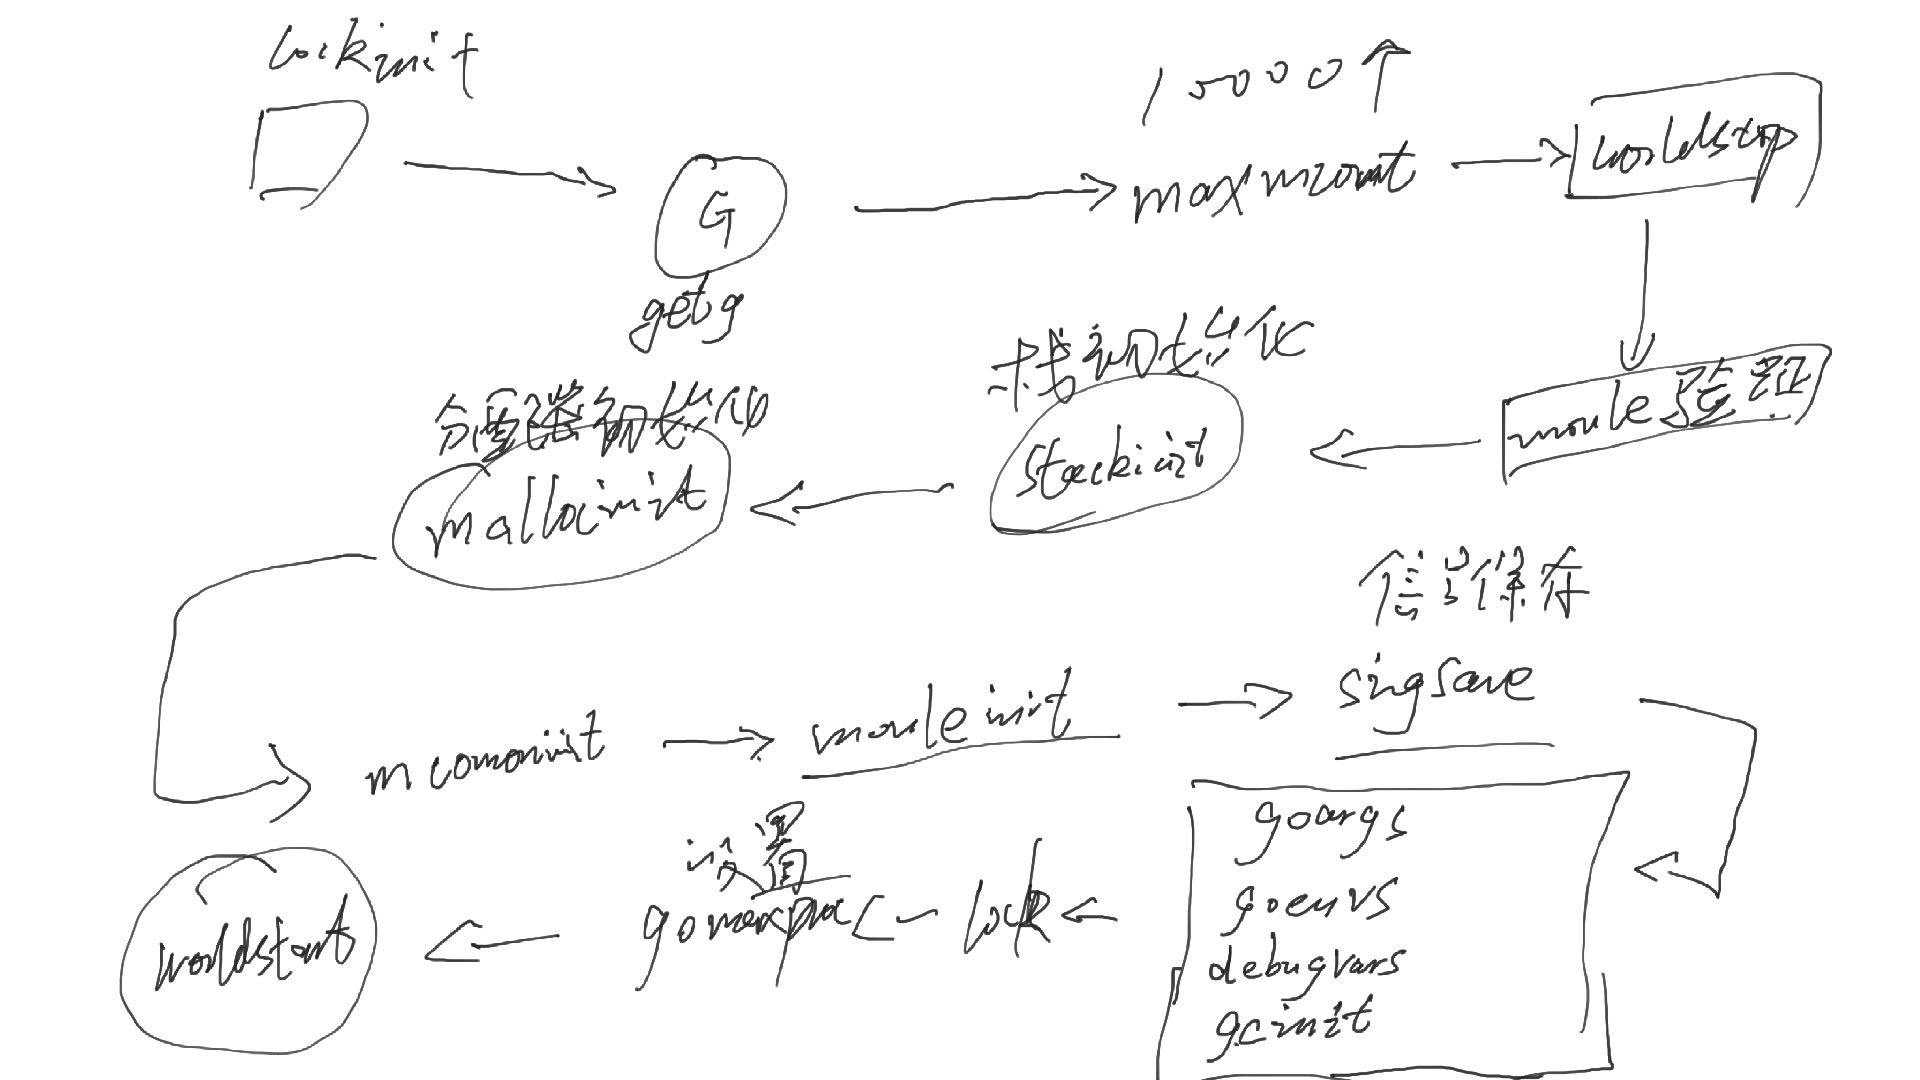 lockinit
G
getg
10000↑
maxmcount
worldstop
moule验证
栈初始化
stackinit
分配器初始化
mallocinit
mcomoninit
mouleinit
信号保存
singsave
goargs
goenvs
debugvars
gcinit
lock
设置
gomaxproc
worldstart